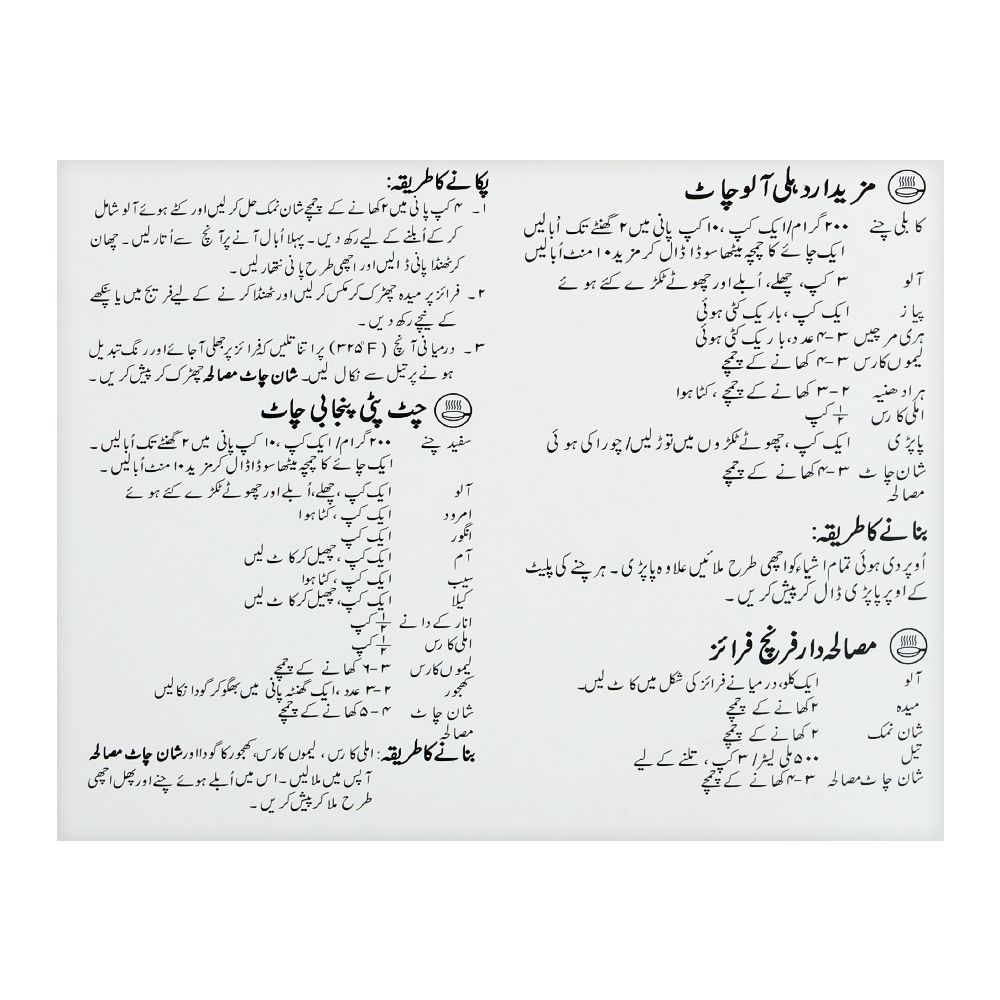 مزیدار دہلی آلو چاٹ
کابلی چنے ۲۰۰ گرام/ایک کپ، ۱۰ کپ پانی میں ۲ گھنٹے تک اُبالیں
ایک چائے کا چمچہ میٹھا سوڈا ڈال کر مزید ۱۰ منٹ اُبالیں
آلو ۳ کپ، چھلے، اُبلے اور چھوٹے ٹکڑے کئے ہوئے
پیاز ایک کپ، باریک کٹی ہوئی
ہری مرچیں ۳-۴ عدد، باریک کٹی ہوئی
لیموں کا رس ۳-۴ کھانے کے چمچے
ہرا دھنیہ ۲-۳ کھانے کے چمچے، کٹا ہوا
املی کا رس ½ کپ
پاپڑی ایک کپ، چھوٹے ٹکڑوں میں توڑ لیں/چورا کی ہوئی
شان چاٹ ۳-۴ کھانے کے چمچے
مصالحہ
بنانے کا طریقہ:
اُوپر دی ہوئی تمام اشیاء کو اچھی طرح ملائیں علاوہ پاپڑی۔ ہر چنے کی پلیٹ
کے اوپر پاپڑی ڈال کر پیش کریں۔
مصالحہ دار فرنچ فرائز
آلو ایک کلو، درمیانے فرائز کی شکل میں کاٹ لیں۔
میدہ ۲ کھانے کے چمچے
شان نمک ۲ کھانے کے چمچے
تیل ۵۰۰ ملی لیٹر/۳ کپ، تلنے کے لیے
شان چاٹ مصالحہ ۳-۴ کھانے کے چمچے
پکانے کا طریقہ:
۱۔ ۴ کپ پانی میں ۲ کھانے کے چمچے شان نمک حل کر لیں اور کٹے ہوئے آلو شامل
کر کے اُبلنے کے لیے رکھ دیں۔ پہلا اُبال آنے پر آنچ سے اُتار لیں۔ چھان
کر ٹھنڈا پانی ڈالیں اور اچھی طرح پانی نتھار لیں۔
۲۔ فرائز پر میدہ چھڑک کر مکس کر لیں اور ٹھنڈا کرنے کے لیے فریج میں یا پنکھے
کے نیچے رکھ دیں۔
۳۔ درمیانی آنچ (۳۲۵°F) پر اتنا تلیں کہ فرائز پر جھلی آجائے اور رنگ تبدیل
ہونے پر تیل سے نکال لیں۔ شان چاٹ مصالحہ چھڑک کر پیش کریں۔
چٹ پٹی پنجابی چاٹ
سفید چنے ۲۰۰ گرام/ایک کپ، ۱۰ کپ پانی میں ۲ گھنٹے تک اُبالیں۔
ایک چائے کا چمچہ میٹھا سوڈا ڈال کر مزید ۱۰ منٹ اُبالیں۔
آلو ایک کپ، چھلے، اُبلے اور چھوٹے ٹکڑے کئے ہوئے
امرود ایک کپ، کٹا ہوا
انگور ایک کپ
آم ایک کپ، چھیل کر کاٹ لیں
سیب ایک کپ، کٹا ہوا
کیلا ایک کپ، چھیل کر کاٹ لیں
انار کے دانے ½ کپ
املی کا رس ½ کپ
لیموں کا رس ۳-۶ کھانے کے چمچے
کھجور ۲-۳ عدد، ایک گھنٹہ پانی میں بھگو کر گودا نکالیں
شان چاٹ ۴-۵ کھانے کے چمچے
مصالحہ
بنانے کا طریقہ: املی کا رس، لیموں کا رس، کھجور کا گودا اور شان چاٹ مصالحہ
آپس میں ملا لیں۔ اس میں اُبلے ہوئے چنے اور پھل اچھی
طرح ملا کر پیش کریں۔